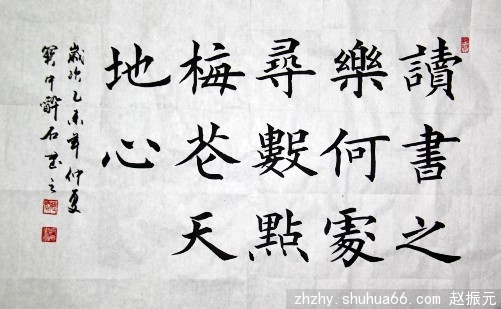 讀書之
樂何處
尋數點
梅花天
地心
歲次乙未年仲夏
石
zhzhy.shuhua66.com 赵振元